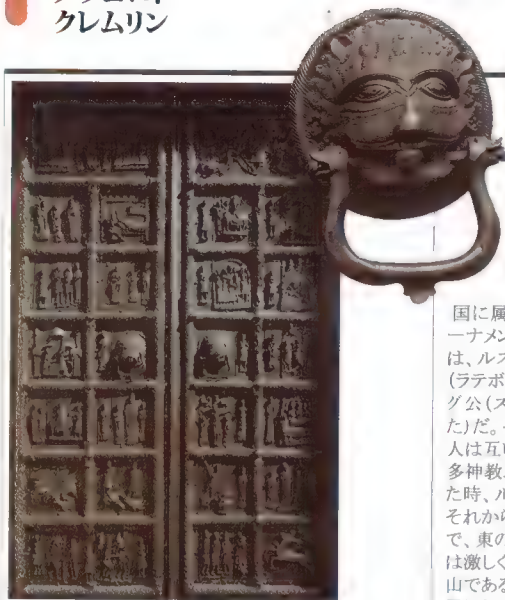 クレムリン
国に属
ーナメン
は、ルス
(ラテボ
グ公(ス
た)だ。
人は互い
多神教
た時、ル
それから
で、東の
は激しく
山である